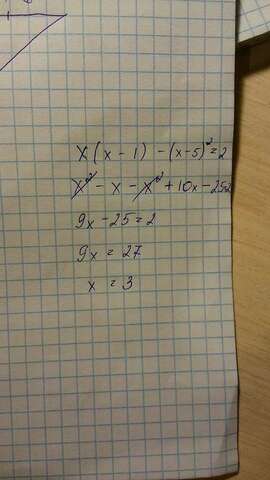 x(x - 1) - (x-5)² = 2
x² - x - x² + 10x - 25=2
9x - 25 = 2
9x = 27
x = 3